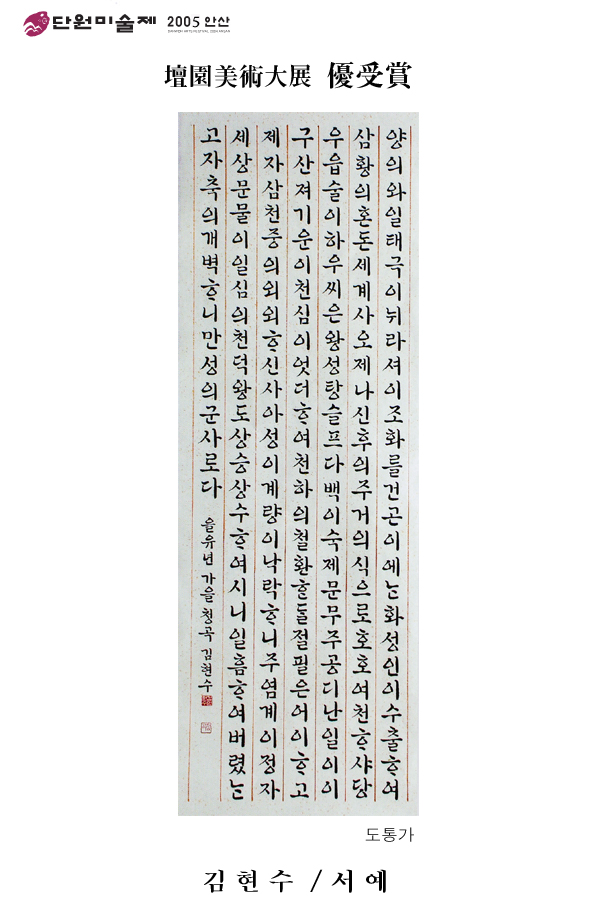 단원미술제 2005 안산
壇園美術大展 優受賞
양의와일태극이뉘라셔이조화를건곤이에ᄂᆞᆫ화성인이수출ᄒᆞ여
삼황의혼돈세계사오제나신후의주거의식으로호호여천ᄒᆞ샤당
우읍술이하우씨은왕성탕슬프다백이숙제문무주공디난일이이
구산져기운이천심이엇더ᄒᆞ여천하의철환ᄒᆞᆯ돌절필은어이ᄒᆞ고
제자삼천중의외외ᄒᆞ신사아성이계량이낙락ᄒᆞ니주염계이정자
세상문물이일심의천덕왕도상승상수ᄒᆞ여시니일흠ᄒᆞ여버렸ᄂᆞᆫ
고자축의개벽ᄒᆞ니만성의군사로다
을유년 가을 청곡 김현수
도통가
김현수 / 서예